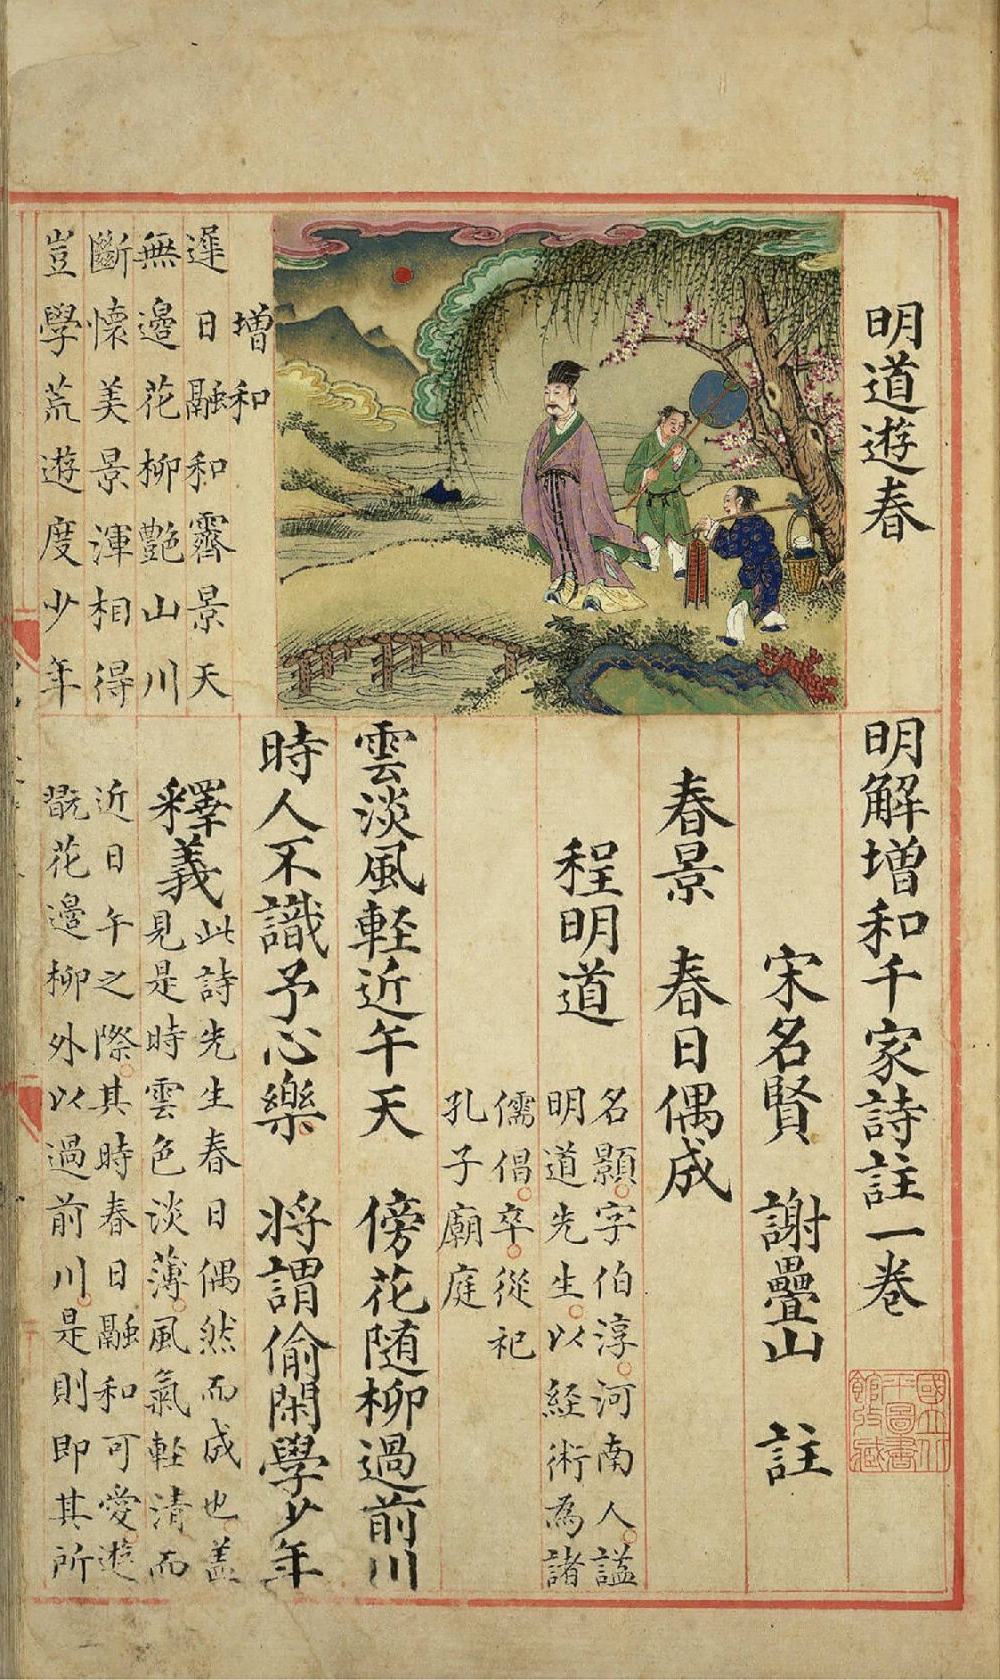 明道遊春
增和
遲日融和霽景天
無邊花柳艷山川
斷懷美景渾相得
豈學荒遊度少年
明解增和千家詩註一卷
國立北
平圖書
館收藏
宋名賢 謝疊山 註
春景 春日偶成
程明道
名顥。字伯淳。河南人。謚
明道先生。以経術為諸
儒倡。卒。從祀
孔子廟庭
雲淡風軽近午天 傍花随柳過前川
時人不識予心樂 将謂偷閑學少年
釋義
此詩先生春日偶然而成也盖
見是時雲色淡薄。風氣軽清而
近日午之際。其時春日融和可愛。遊
翫花邊柳外以過前川。是則即其所